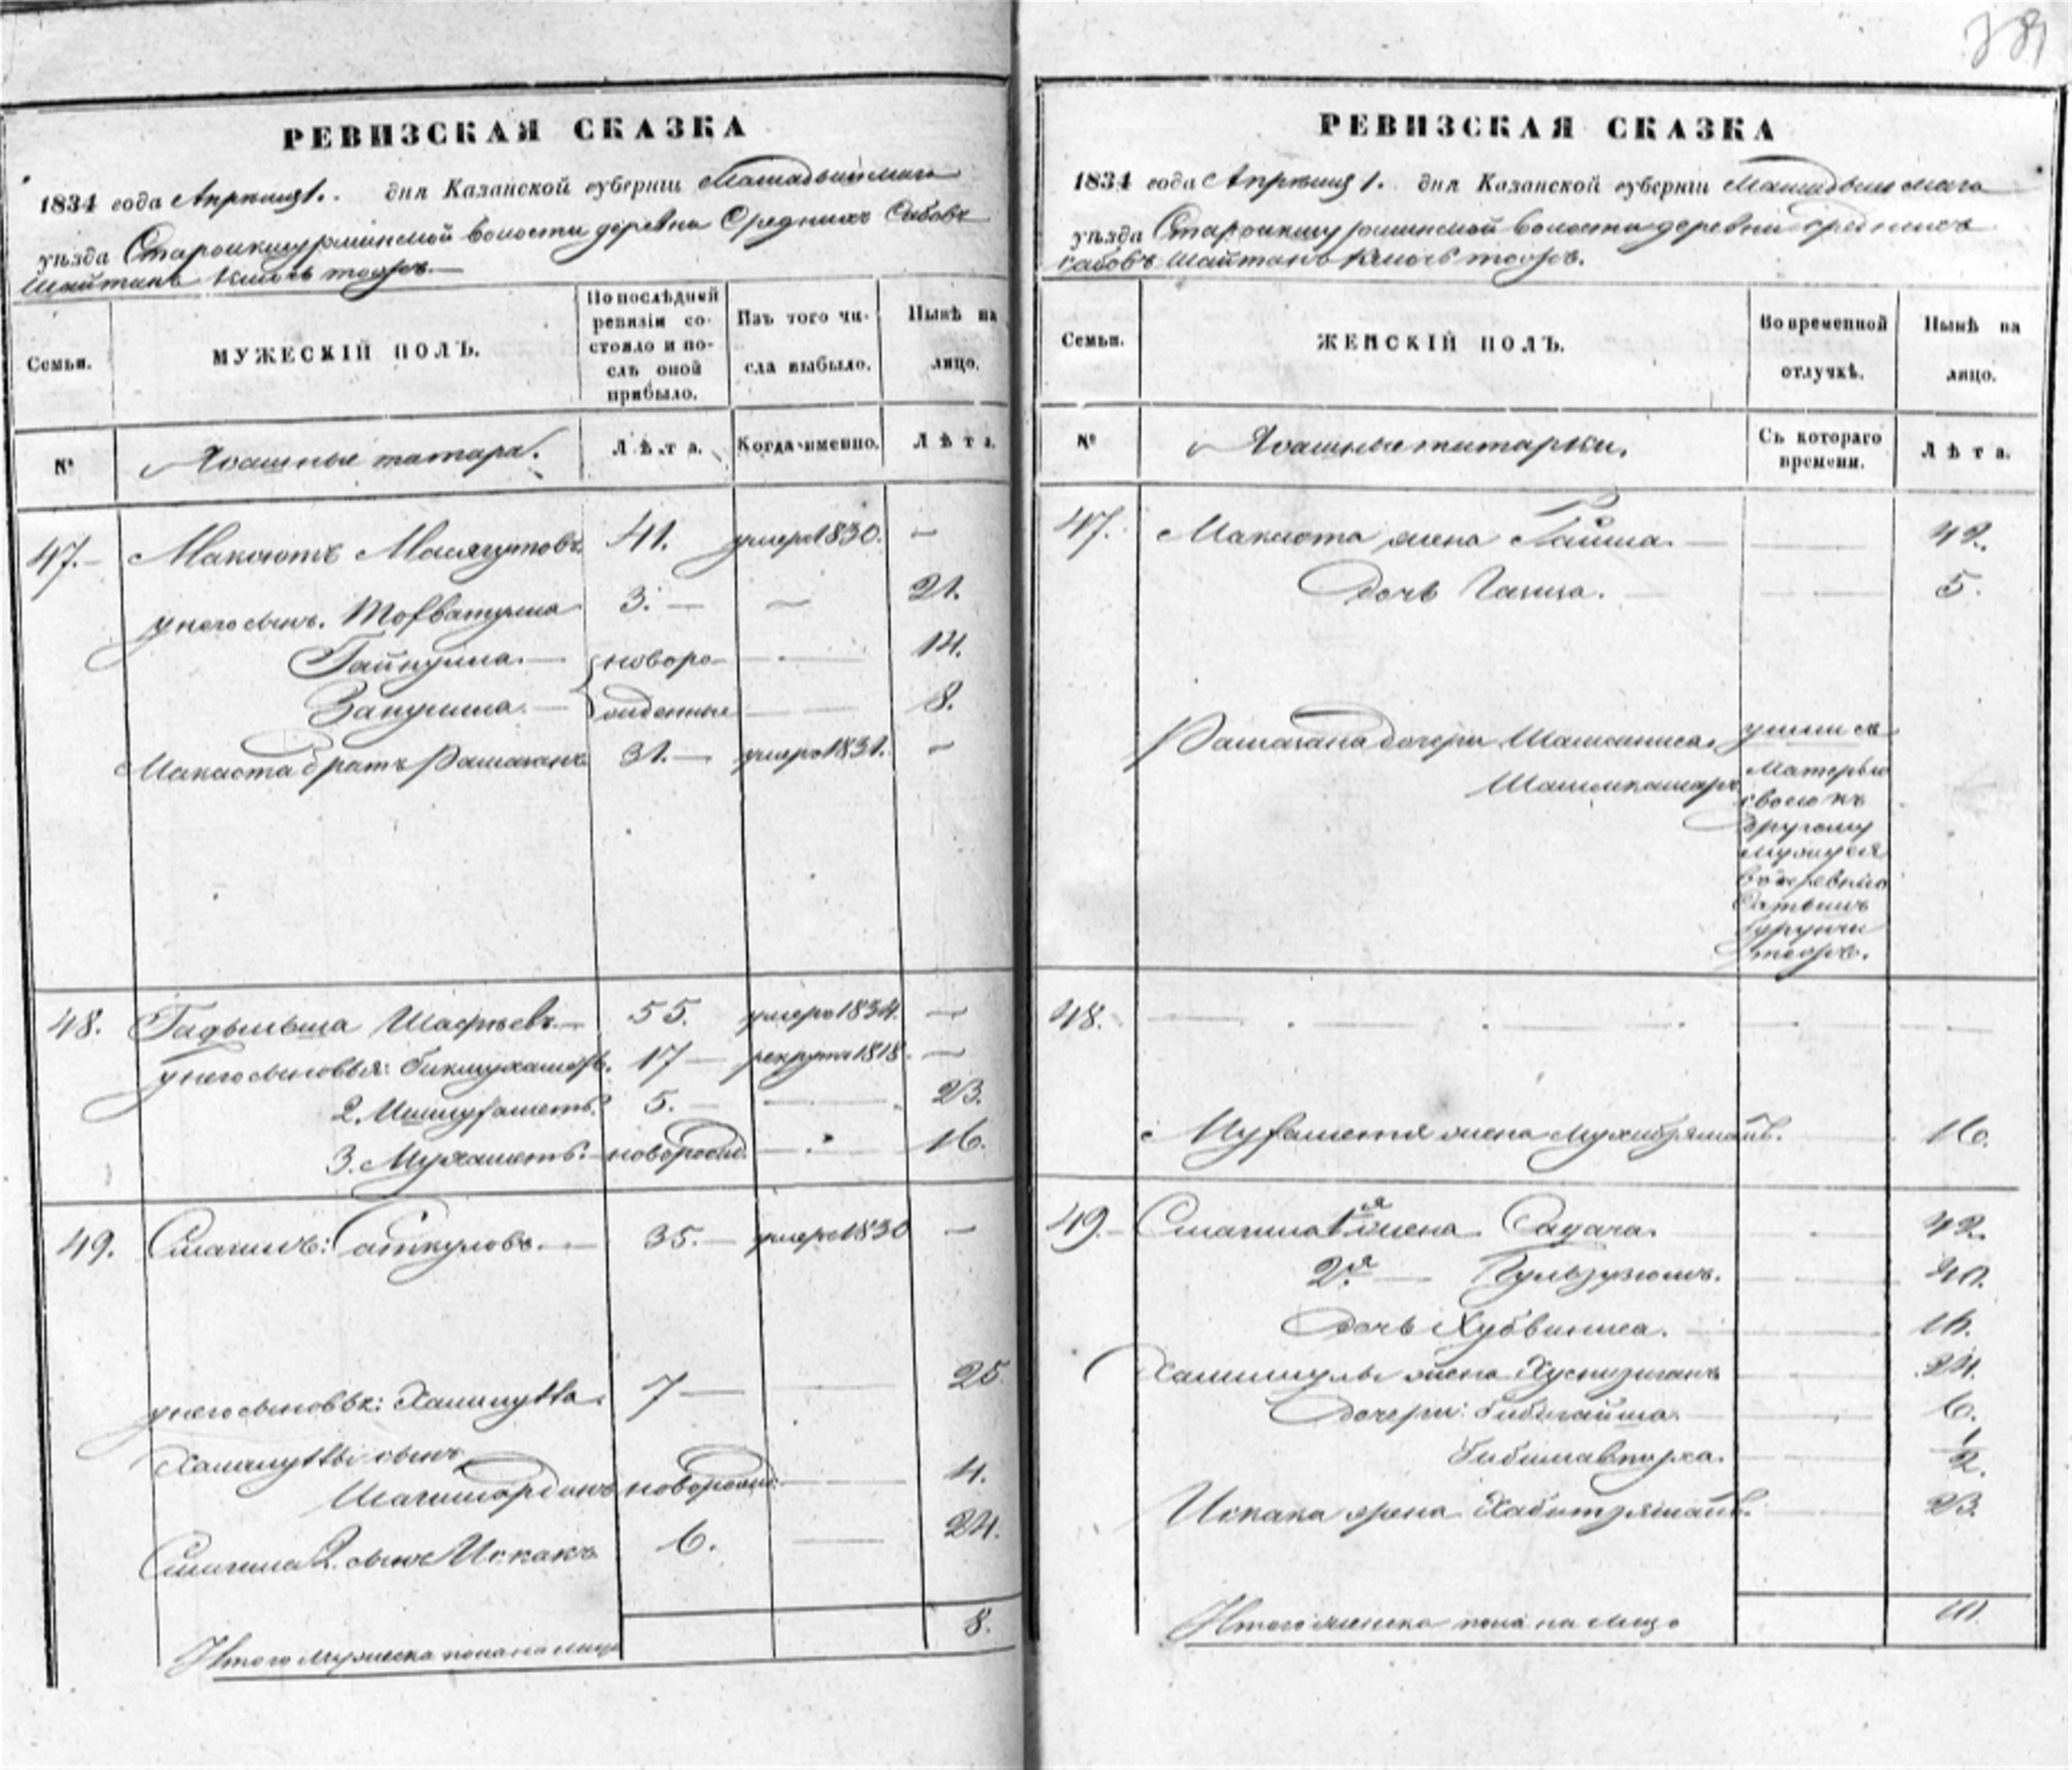 РЕВИЗСКАЯ СКАЗКА
1834 года Апреля 1. дня Казанской губерніи Мамадышскаго
уѣзда Староикшурминской волости деревни Среднихъ Сабовъ
Шайтанъ Ключь тожъ.
Семьи.
МУЖЕСКІЙ ПОЛЪ.
По послѣдней ревизіи состояло и послѣ оной прибыло.
Изъ того числа выбыло.
Нынѣ на лицо.
№
Ясашные татара.
Лѣта.
Когда именно.
Лѣта.
47. Максютъ Масягутовъ 41. умеръ 1830. —
у него сынъ. Тохватулла 3. — — 21.
Гайнулла. — новоро- — 14.
Занулла. — жденные — 8.
Максюта братъ Рамазанъ 31. — умеръ 1831. —
48. Гадыльша Шафѣевъ — 55. умеръ 1834. —
у него сыновья: Бикмухаметь. 17 — рекрутъ 1818 —
2. Ишмухаметь. 5. — — 23.
3. Мухаметь. — новорожд. — 16.
49. Смагилъ: Саткуловъ. — 35. — умеръ 1830 —
у него сыновья: Халиулла. 7 — — 25
Халиуллы сынъ
новорожд. — 4.
Смагила 2. сынъ Искакъ 6. — 24.
Итого мужеска пола на лицо 8.
РЕВИЗСКАЯ СКАЗКА
1834 года Апреля 1. дня Казанской губерніи Мамадышскаго
уѣзда Староикшурминской волости деревни Среднихъ
Сабовъ Шайтанъ Ключь тожъ.
Семьи.
ЖЕНСКІЙ ПОЛЪ.
Во временной отлучкѣ.
Нынѣ на лицо.
№
Ясашные татарки.
Съ котораго времени.
Лѣта.
47. Максюта жена Гайша. — — 42.
дочь — — 5.
Рамазана дочери ушли съ
матерью
своею къ
другому
мужу ея
въ деревню
Сатышъ
тожъ.
48. — — — —
Мухаметя жена — 16.
49. Смагила 1я жена Садача. — 42.
2я — — 40.
дочь Хубвиниса. — — 16.
Халиуллы жена — 24.
дочери: Бибигайша. — — 6.
— 1/2.
Искака жена — 23.
Итого женска пола на лицо 10